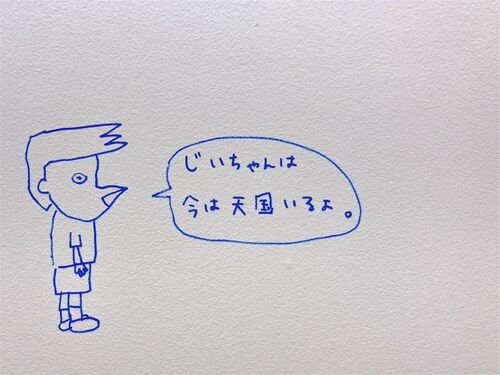 じいちゃんは
今は天国いるよ。